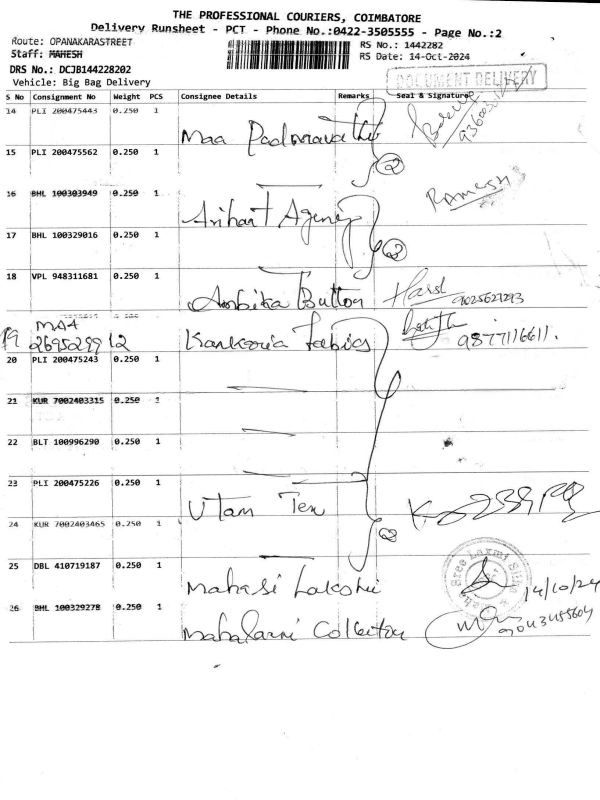 THE PROFESSIONAL COURIERS, COIMBATORE
Delivery Runsheet - PCT - Phone No.:0422-3505555 - Page No.:2
Route: OPANAKARASTREET
RS No.: 1442282
Staff: MAHESH
RS Date: 14-Oct-2024
DRS No.: DCJB144228202
DOCUMENT DELIVERY
Vehicle: Big Bag Delivery
S No Consignment No Weight PCS Consignee Details Remarks Seal & Signature
14 PLI 200475443 0.250 1 Maa Padmavathi
15 PLI 200475562 0.250 1
16 BHL 100303949 0.250 1 Arihant Agency RAMESH
17 BHL 100329016 0.250 1
18 VPL 948311681 0.250 1 Ambika Button
19 MAA 269529912 Kankaria Fabics 9877116611.
20 PLI 200475243 0.250 1
21 KUR 7002403315 0.250 1
22 BLT 100996290 0.250 1
23 PLI 200475226 0.250 1 Utam Tex
24 KUR 7002403465 0.250 1
25 DBL 410719187 0.250 1 Mahasi Lakshi 14/10/24
26 BHL 100329278 0.250 1 Mahalaxmi Collection